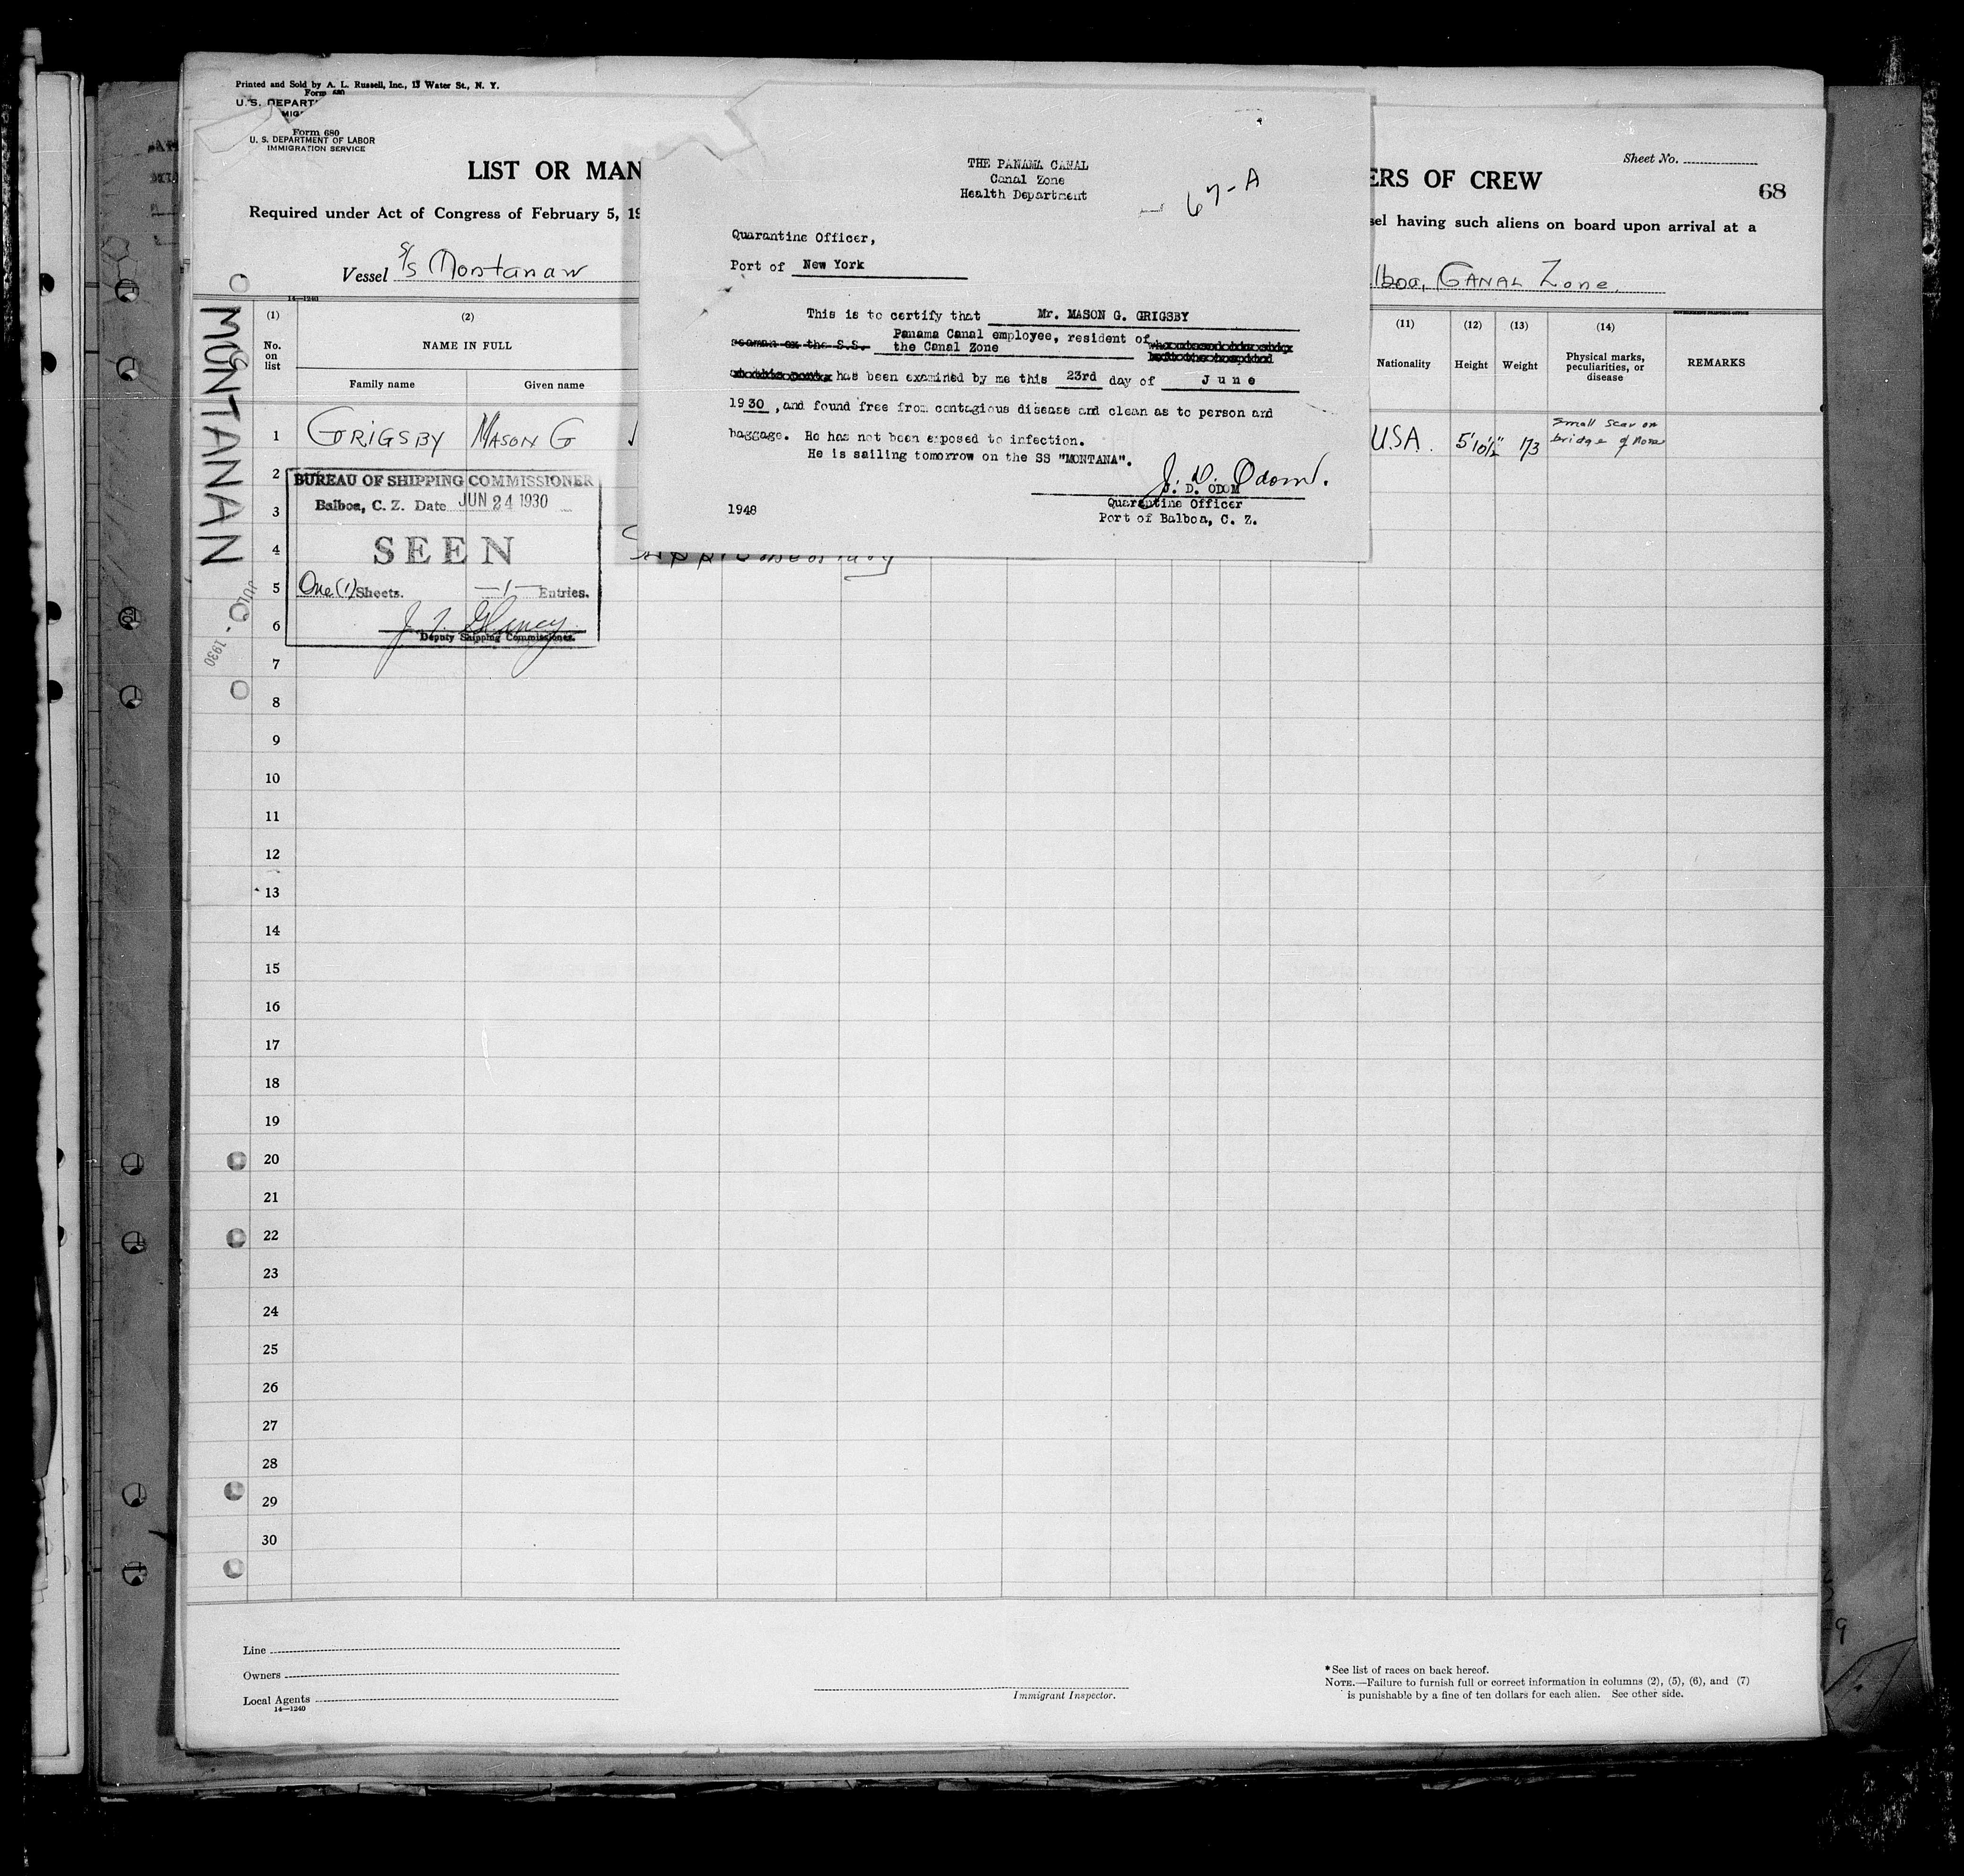 Printed and Sold by A. L. Russell, Inc., 13 Water St., N. Y.
Form 680
U. S. DEPART
MIG
Form 680
U. S. DEPARTMENT OF LABOR
IMMIGRATION SERVICE
LIST OR MAN
ERS OF CREW
Sheet No.
68
Required under Act of Congress of February 5, 19
sel having such aliens on board upon arrival at a
Vessel S/S Montanan
lboa, CANAL Zone.
THE PANAMA CANAL
Canal Zone
Health Department
67-A
Quarantine Officer,
Port of New York
This is to certify that Mr. MASON G. GRIGSBY
Panama Canal employee, resident of
seaman ex the S.S. the Canal Zone
has been examined by me this 23rd day of June
1930, and found free from contagious disease and clean as to person and
baggage. He has not been exposed to infection.
He is sailing tomorrow on the SS "MONTANA".
J. D. Odom.
J. D. ODOM
Quarantine Officer
Port of Balboa, C. Z.
1948
14—1240
(1) (2) (11) (12) (13) (14)
No. on list
NAME IN FULL
Family name Given name
Nationality Height Weight
Physical marks, peculiarities, or disease
REMARKS
GOVERNMENT PRINTING OFFICE
1 GRIGSBY MASON G USA. 5'10½" 173 Small scar on bridge of nose
MONTANAN
BUREAU OF SHIPPING COMMISSIONER
Balboa, C. Z. Date JUN 24 1930
SEEN
One (1) Sheets. —1— Entries.
Deputy Shipping Commissioner.
1930
2
3
4
5
6
7
8
9
10
11
12
13
14
15
16
17
18
19
20
21
22
23
24
25
26
27
28
29
30
Line
Owners
Local Agents
14—1240
Immigrant Inspector.
*See list of races on back hereof.
NOTE.—Failure to furnish full or correct information in columns (2), (5), (6), and (7)
is punishable by a fine of ten dollars for each alien. See other side.